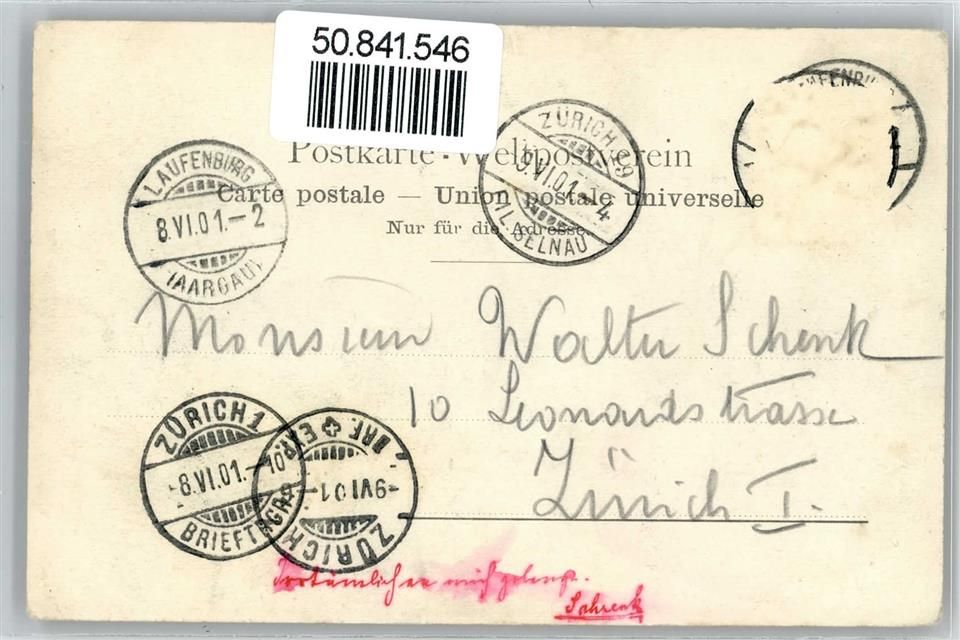 50.841.546
LAUFENBURG
8.VI.01.–2
(AARGAU)
ZÜRICH
9.VI.01.–4
FIL. SELNAU
Postkarte - Weltpostverein
Carte postale — Union postale universelle
Nur für die Adresse
Monsieur Walter Schenk
10 Leonardstrasse
Zürich I.
ZÜRICH 1
-8.VI.01.–10
BRIEFTRGR
BRF. EXP.
-9 VI 01-
ZÜRICH
Irrtümlich an mich gelangt.
Schrenk